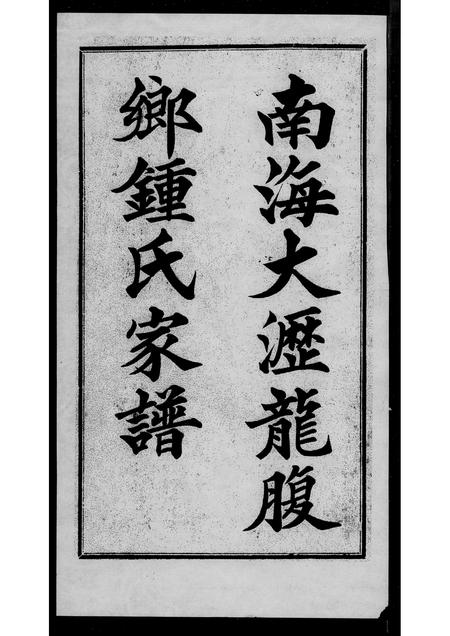 南海大瀝龍腹
鄉鍾氏家譜